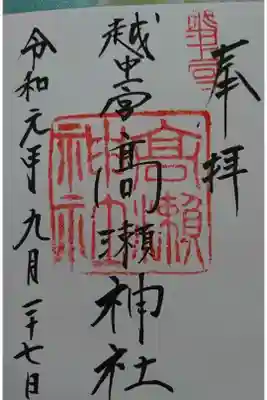 奉拝
越中一宮高瀬神社
高瀬神社
令和元年九月二十七日